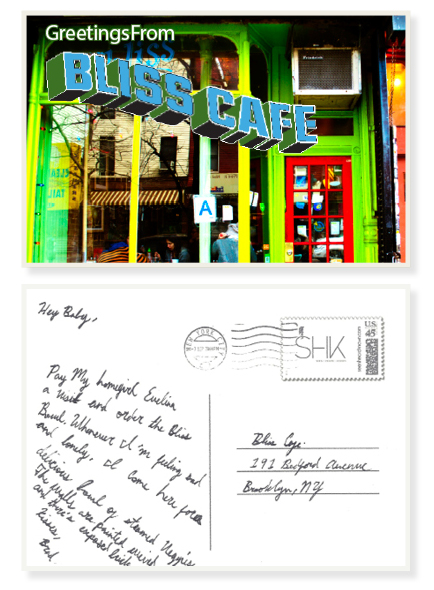 GreetingsFrom
BLISS CAFE
A
Hey Baby,
Pay My homegirl Evelina
a visit and order the Bliss
Bowl. Whenever I'm feeling sad
and lonely, I come here for a
delicious bowl of steamed Veggies
The walls are painted weird
and there's exposed brick
Kisses,
Brad.
NEW YORK
SHK
U.S.
45
Bliss Cafe.
191 Bedford Avenue
Brooklyn, NY